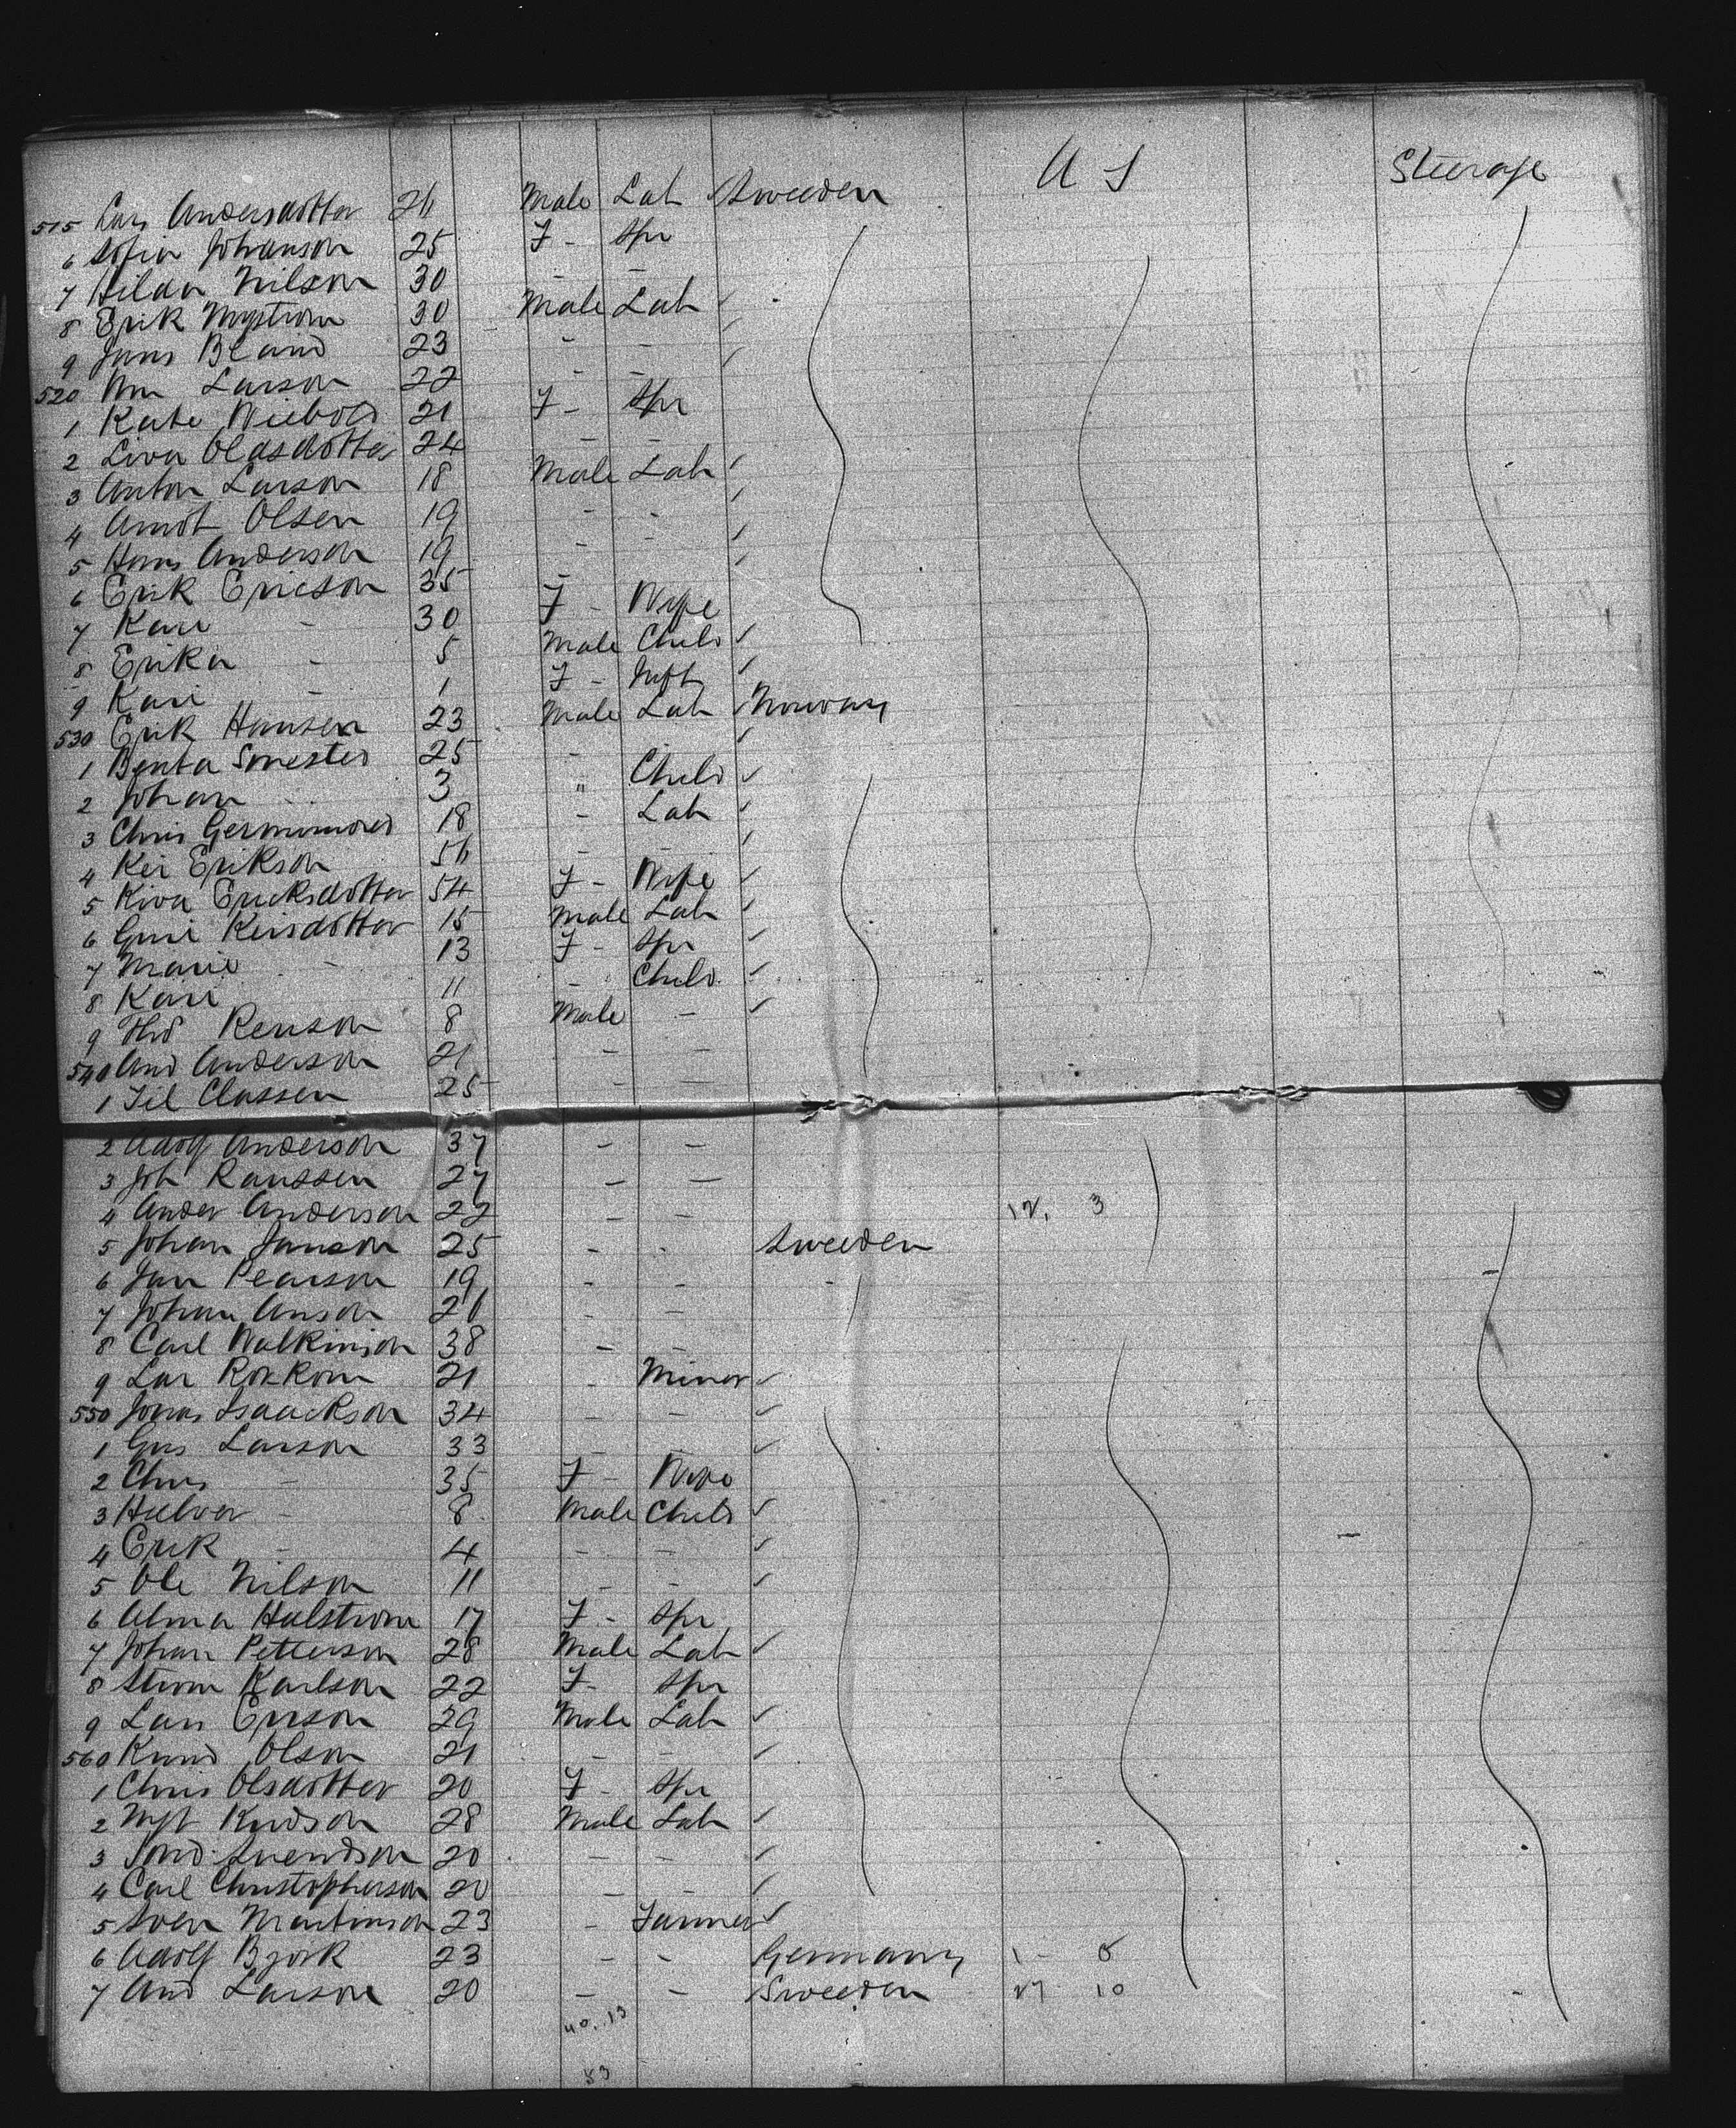 U S Steerage
515 Lars Andersdotter 26 Male Lab Sweeden
6 Sofia Johanson 25 F - Spr
7 Hilda Nilson 30 - -
8 Erik Nystrom 30 Male Lab
9 Jans Bland 23 - -
520 Wm Larson 22 - -
1 Kate Niebold 21 F - Spr
2 Liva Olasdotter 24 - -
3 Anton Larson 18 Male Lab
4 Arndt Olsen 19 - -
5 Hans Anderson 19 - -
6 Erik Ericson 35 -
7 Kari - 30 F - Wife
8 Erika - 5 Male Child
9 Kari - 1 F - Inft
530 Erik Hansen 23 Male Lab Norway
1 Benta 25 -
2 Johan 3 " Child
3 Chris 18 - Lab
4 Kei Erikson 56 - -
5 Kiva Ericksdotter 54 F - Wife
6 Guri Keisdotter 15 Male Lab
7 Marie - 13 F - Spr
8 Kari 11 - Child
9 Thd Kenson 8 Male -
540 And Anderson 21 - -
1 Til Classen 25 - -
2 Adolf Anderson 37 - -
3 Joh Ranssen 27 - -
4 Ander Anderson 22 - - 12, 3
5 Johan Janson 25 - - Sweeden
6 Jan Pearson 19 - - -
7 Johan Anson 21 - -
8 Carl Walkinson 38 - -
9 Lar 21 - Miner
550 Jonas Isaackson 34 - -
1 Gus Larson 33 - -
2 Chris - 35 F - Wife
3 Halvor - 8 Male Child
4 Erik - 4 - -
5 Ole Nilson 11 - -
6 Alma Halstrom 17 F - Spr
7 Johan Petterson 28 Male Lab
8 Karlson 22 F - Spr
9 Lars Erison 29 Male Lab
560 Knud Olson 21 - -
1 Chris Olsdotter 20 F - Spr
2 Kudson 28 Male Lab
3 Svendson 20 - -
4 Carl Christopherson 20 - -
5 Sven Martinson 23 - Farmer
6 Adolf Bjork 23 - - Germany 1 - 8
7 And Larson 20 - - Sweeden 17 10
40..13
53